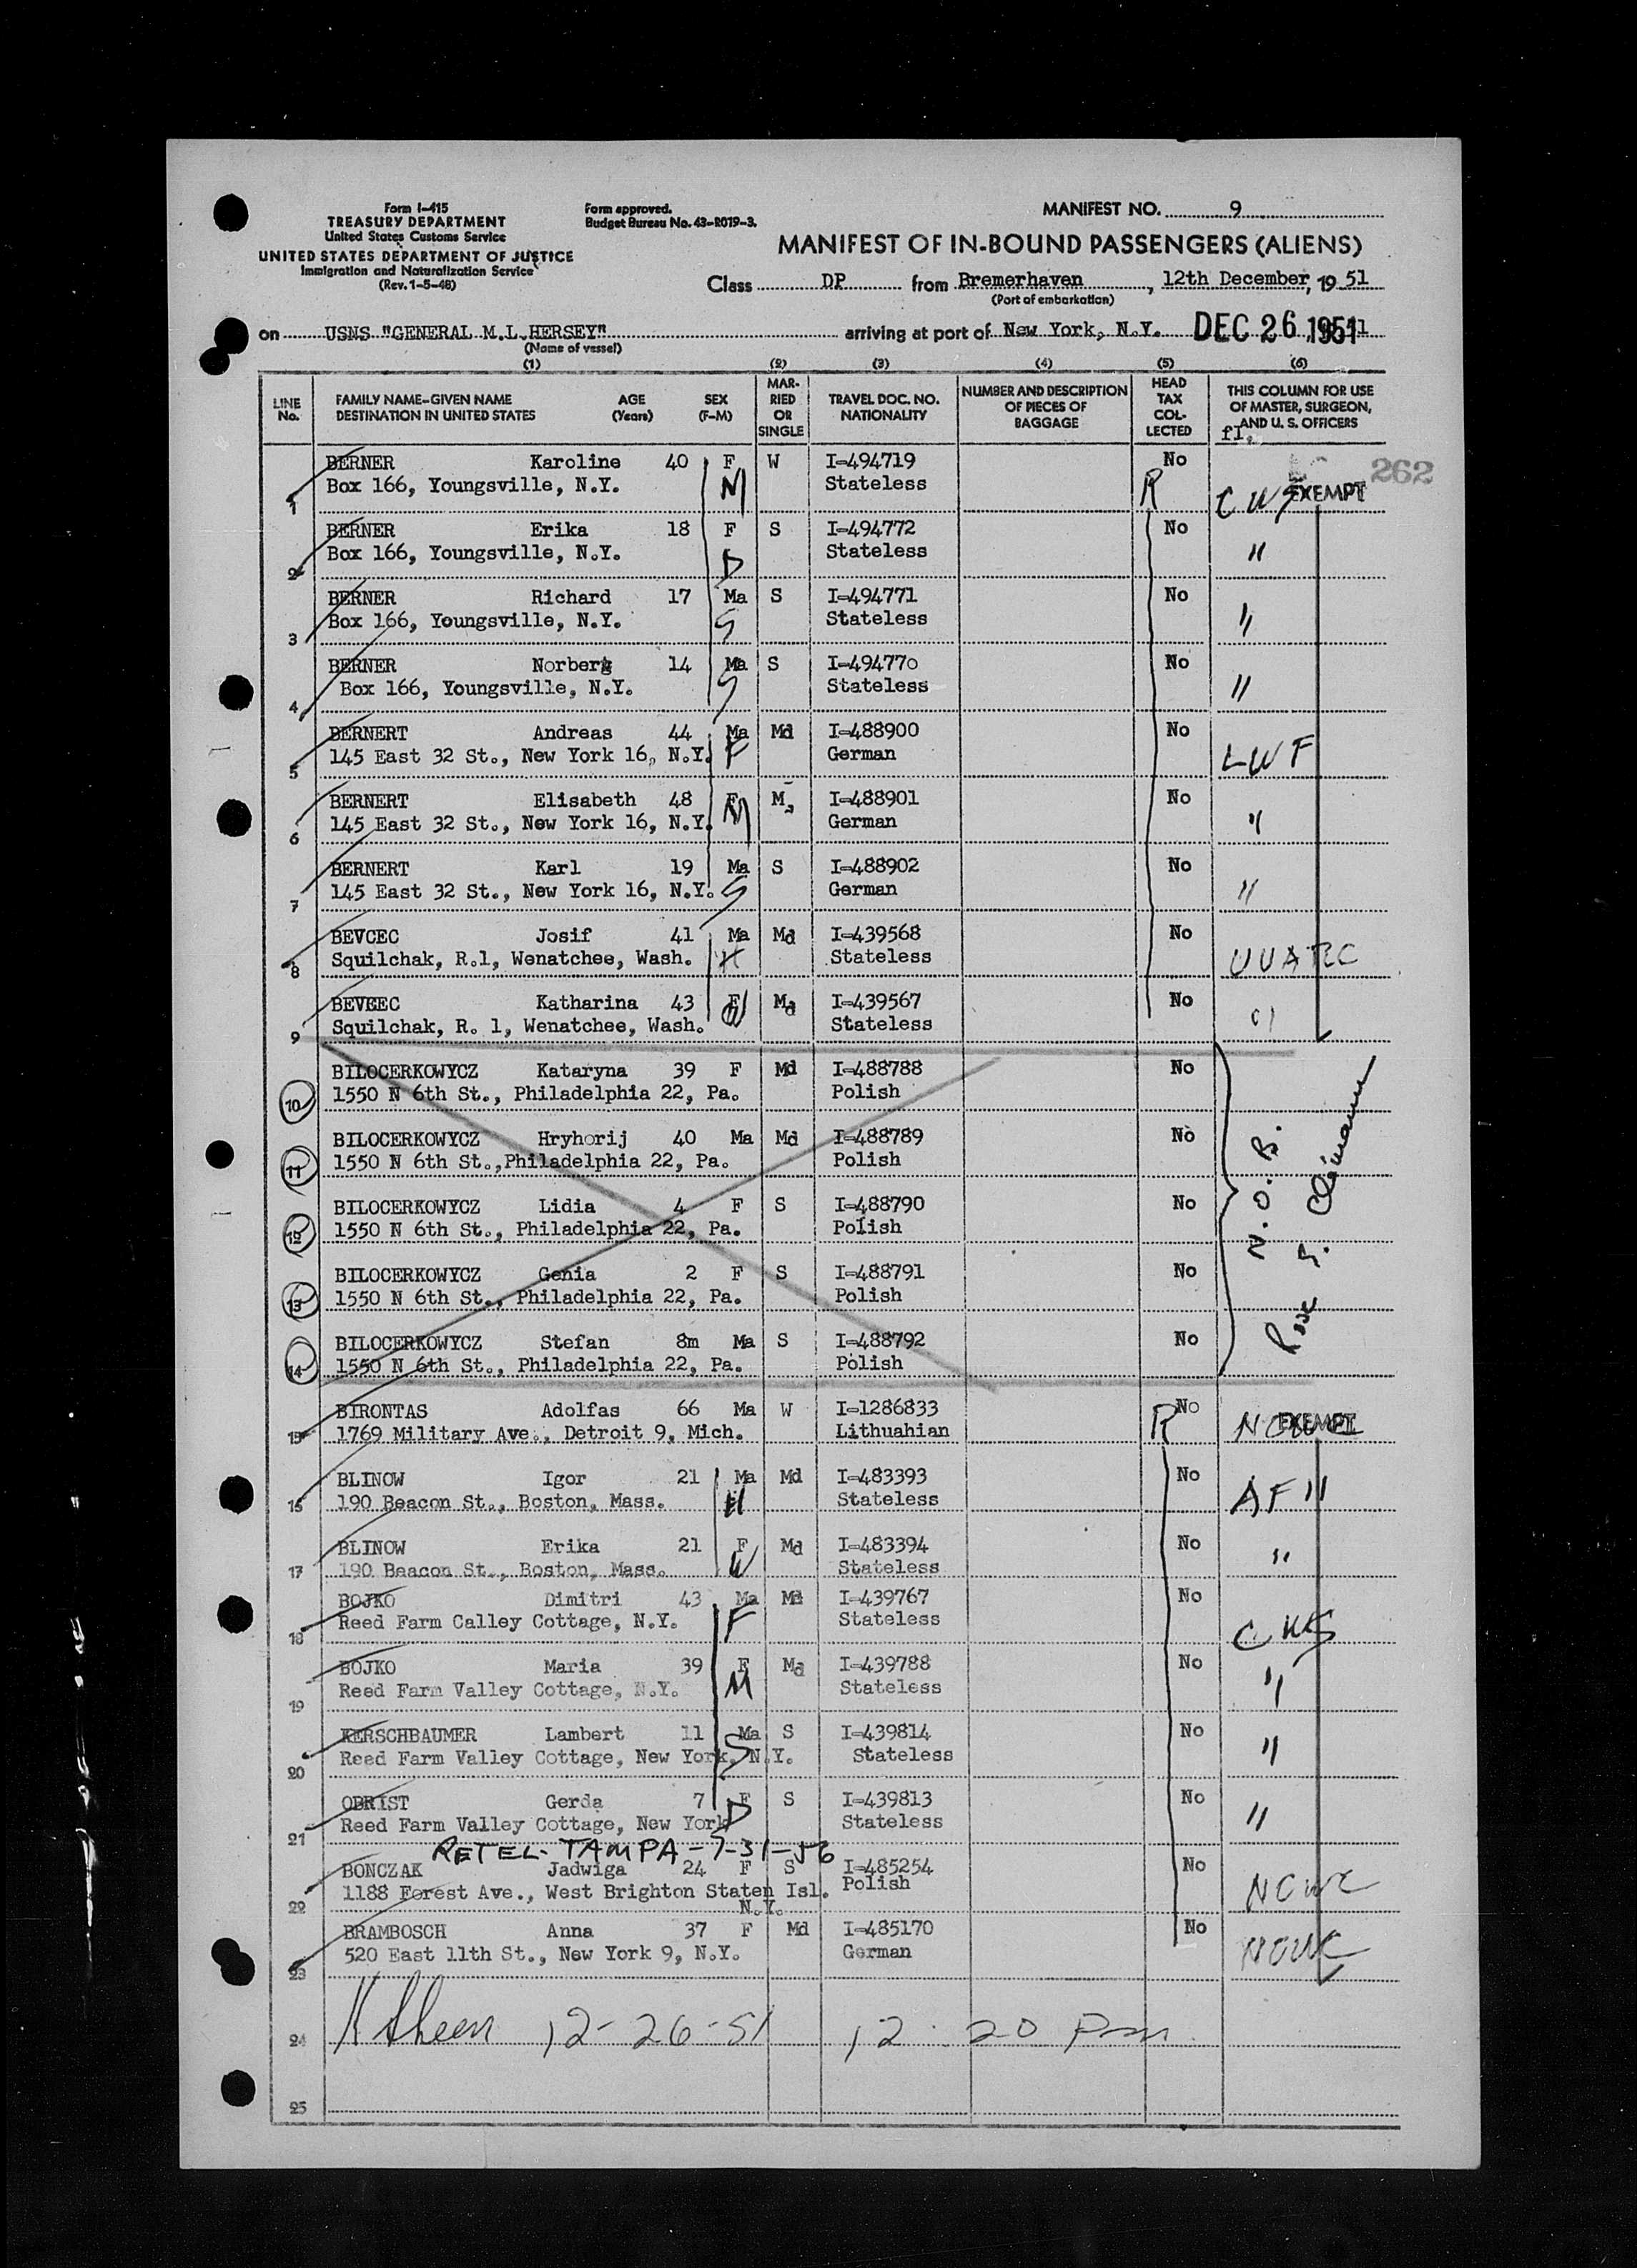 Form I-415
TREASURY DEPARTMENT
United States Customs Service
UNITED STATES DEPARTMENT OF JUSTICE
Immigration and Naturalization Service
(Rev. 1-5-48)
Form approved.
Budget Bureau No. 43-R019-3.
MANIFEST NO. 9
MANIFEST OF IN-BOUND PASSENGERS (ALIENS)
Class DP from Bremerhaven, 12th December, 19 51
(Port of embarkation)
on USNS "GENERAL M.L.HERSEY" arriving at port of New York, N.Y. DEC 26 1951
(Name of vessel)
(1) (2) (3) (4) (5) (6)
LINE No. FAMILY NAME-GIVEN NAME DESTINATION IN UNITED STATES AGE (Years) SEX (F-M) MARRIED OR SINGLE TRAVEL DOC. NO. NATIONALITY NUMBER AND DESCRIPTION OF PIECES OF BAGGAGE HEAD TAX COLLECTED THIS COLUMN FOR USE OF MASTER, SURGEON, AND U. S. OFFICERS
fl.
262
BERNER Karoline 40 F W I-494719 No
1 Box 166, Youngsville, N.Y. M Stateless R CWS EXEMPT
BERNER Erika 18 F S I-494772 No
2 Box 166, Youngsville, N.Y. D Stateless "
BERNER Richard 17 Ma S I-494771 No
3 Box 166, Youngsville, N.Y. S Stateless "
BERNER Norberg 14 Ma S I-494770 No
4 Box 166, Youngsville, N.Y. S Stateless "
BERNERT Andreas 44 Ma Md I-488900 No
5 145 East 32 St., New York 16, N.Y. F German LWF
BERNERT Elisabeth 48 F M I-488901 No
6 145 East 32 St., New York 16, N.Y. M German "
BERNERT Karl 19 Ma S I-488902 No
7 145 East 32 St., New York 16, N.Y. S German "
BEVCEC Josif 41 Ma Md I-439568 No
8 Squilchak, R.1, Wenatchee, Wash. H Stateless UUARC
BEVCEC Katharina 43 F Md I-439567 No
9 Squilchak, R. 1, Wenatchee, Wash. W Stateless "
BILOCERKOWYCZ Kataryna 39 F Md I-488788 No
10 1550 N 6th St., Philadelphia 22, Pa. Polish
BILOCERKOWYCZ Hryhorij 40 Ma Md I-488789 No
11 1550 N 6th St.,Philadelphia 22, Pa. Polish
BILOCERKOWYCZ Lidia 4 F S I-488790 No
12 1550 N 6th St., Philadelphia 22, Pa. Polish
BILOCERKOWYCZ Genia 2 F S I-488791 No
13 1550 N 6th St., Philadelphia 22, Pa. Polish
BILOCERKOWYCZ Stefan 8m Ma S I-488792 No
14 1550 N 6th St., Philadelphia 22, Pa. Polish
N.O.B.
Rose
BIRONTAS Adolfas 66 Ma W I-1286833 No
15 1769 Military Ave., Detroit 9, Mich. Lithuahian R NCWC EXEMPT
BLINOW Igor 21 Ma Md I-483393 No
16 190 Beacon St., Boston, Mass. H Stateless
BLINOW Erika 21 F Md I-483394 No
17 190 Beacon St., Boston, Mass. W Stateless "
BOJKO Dimitri 43 Ma Md I-439767 No
18 Reed Farm Calley Cottage, N.Y. F Stateless CWS
BOJKO Maria 39 F Md I-439788 No
19 Reed Farm Valley Cottage, N.Y. M Stateless "
KERSCHBAUMER Lambert 11 Ma S I-439814 No
20 Reed Farm Valley Cottage, New York, N.Y. S Stateless "
OBRIST Gerda 7 F S I-439813 No
21 Reed Farm Valley Cottage, New York D Stateless "
RETEL-TAMPA-7-31-56
BONCZAK Jadwiga 24 F S I-485254 No
22 1188 Forest Ave., West Brighton Staten Isl. Polish NCWC
N.Y.
BRAMBOSCH Anna 37 F Md I-485170 No
23 520 East 11th St., New York 9, N.Y. German NCWC
24 12-26-51 12 20 Pm
25